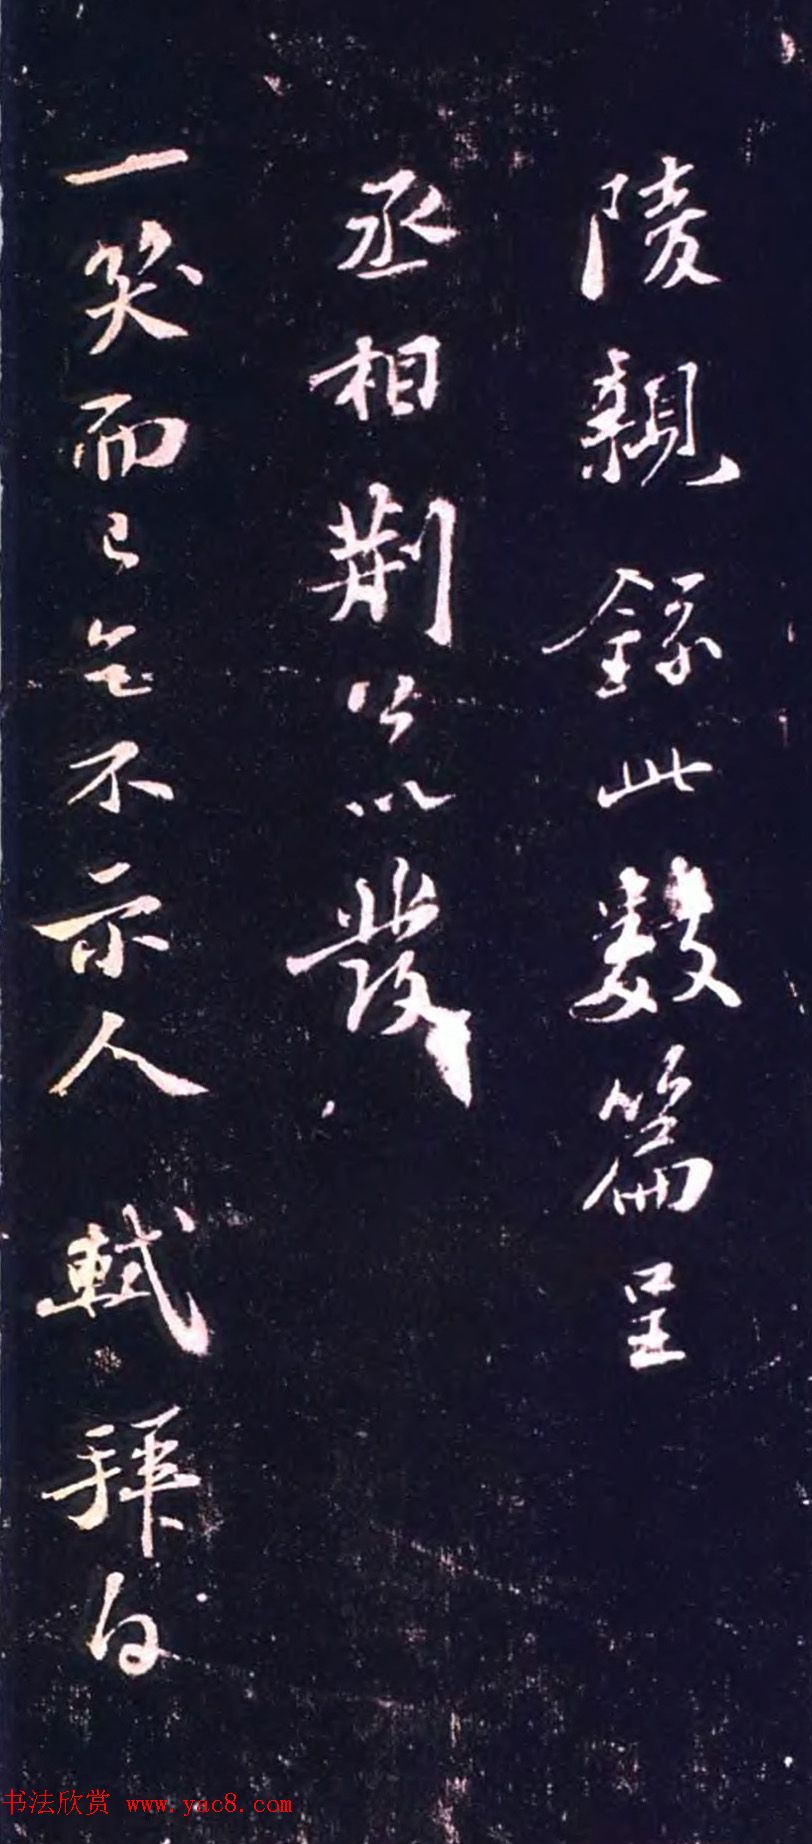 陵親錄此數篇呈
丞相荆公以發
一笑而已乞不示人 軾拜白
书法欣赏 www.yac8.com